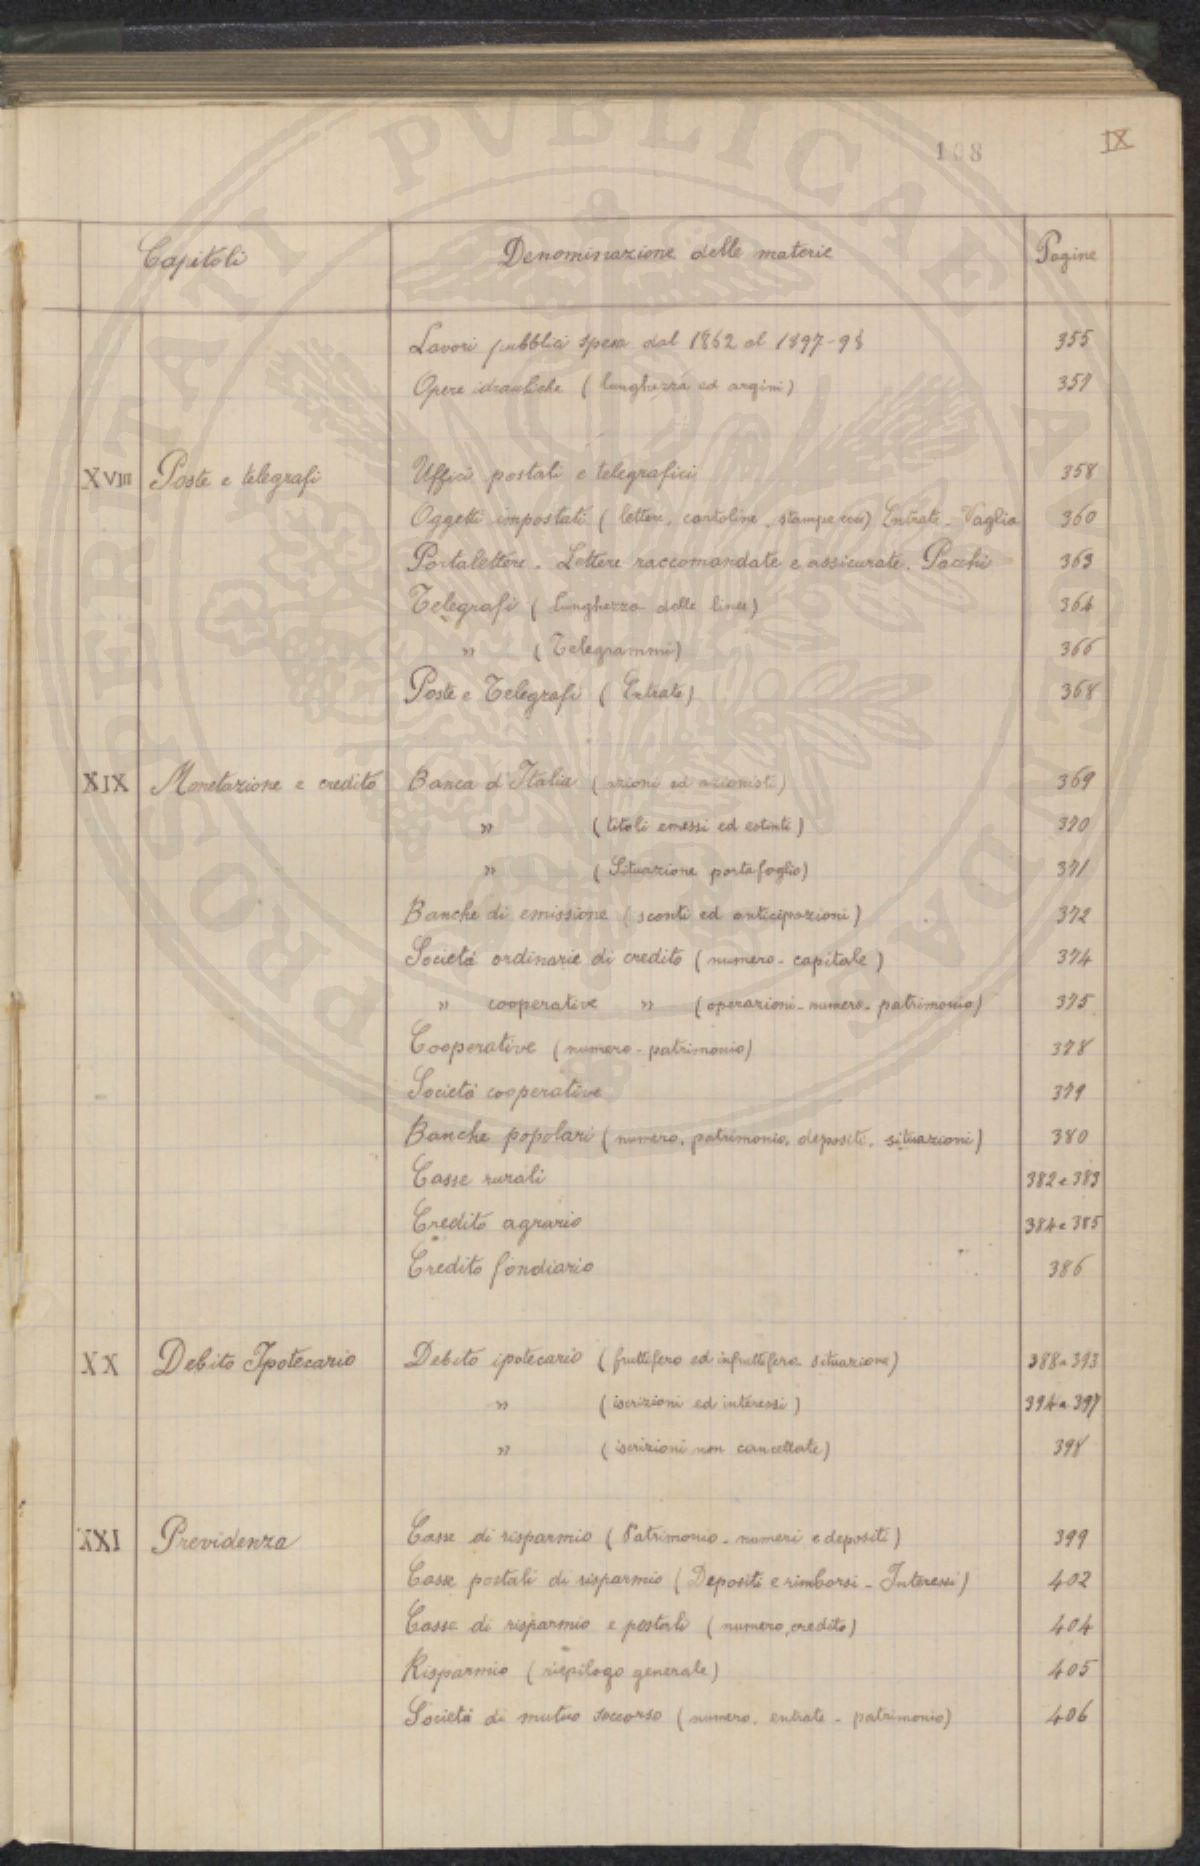 PROSPERITATI PVBLICAE AVGENDAE
108
IX
Capitoli Denominazione delle materie Pagine
Lavori pubblici spese dal 1862 al 1897-98 355
Opere idrauliche (lunghezza ed argini) 357
XVIII Poste e telegrafi Uffici postali e telegrafici 358
Oggetti impostati (lettere, cartoline, stampe ecc) Entrate - Vaglia 360
Portalettere. Lettere raccomandate e assicurate. Pacchi 363
Telegrafi (lunghezza delle linee) 364
" (Telegrammi) 366
Poste e Telegrafi (Entrate) 368
XIX Monetazione e credito Banca d'Italia (azioni ed azionisti) 369
" (titoli emessi ed estinti) 370
" (Situazione portafoglio) 371
Banche di emissione (sconti ed anticipazioni) 372
Società ordinarie di credito (numero - capitale) 374
" cooperative " (operazioni - numero - patrimonio) 375
Cooperative (numero - patrimonio) 378
Società cooperative 379
Banche popolari (numero, patrimonio, depositi, situazioni) 380
Casse rurali 382 e 383
Credito agrario 384 e 385
Credito fondiario 386
XX Debito Ipotecario Debito ipotecario (fruttifero ed infruttifero situazione) 388 a 393
" (iscrizioni ed interessi) 394 a 397
" (iscrizioni non cancellate) 398
XXI Previdenza Casse di risparmio (Patrimonio - numeri e depositi) 399
Casse postali di risparmio (Depositi e rimborsi - Interessi) 402
Casse di risparmio e postali (numero, credito) 404
Risparmio (riepilogo generale) 405
Società di mutuo soccorso (numero, entrate - patrimonio) 406